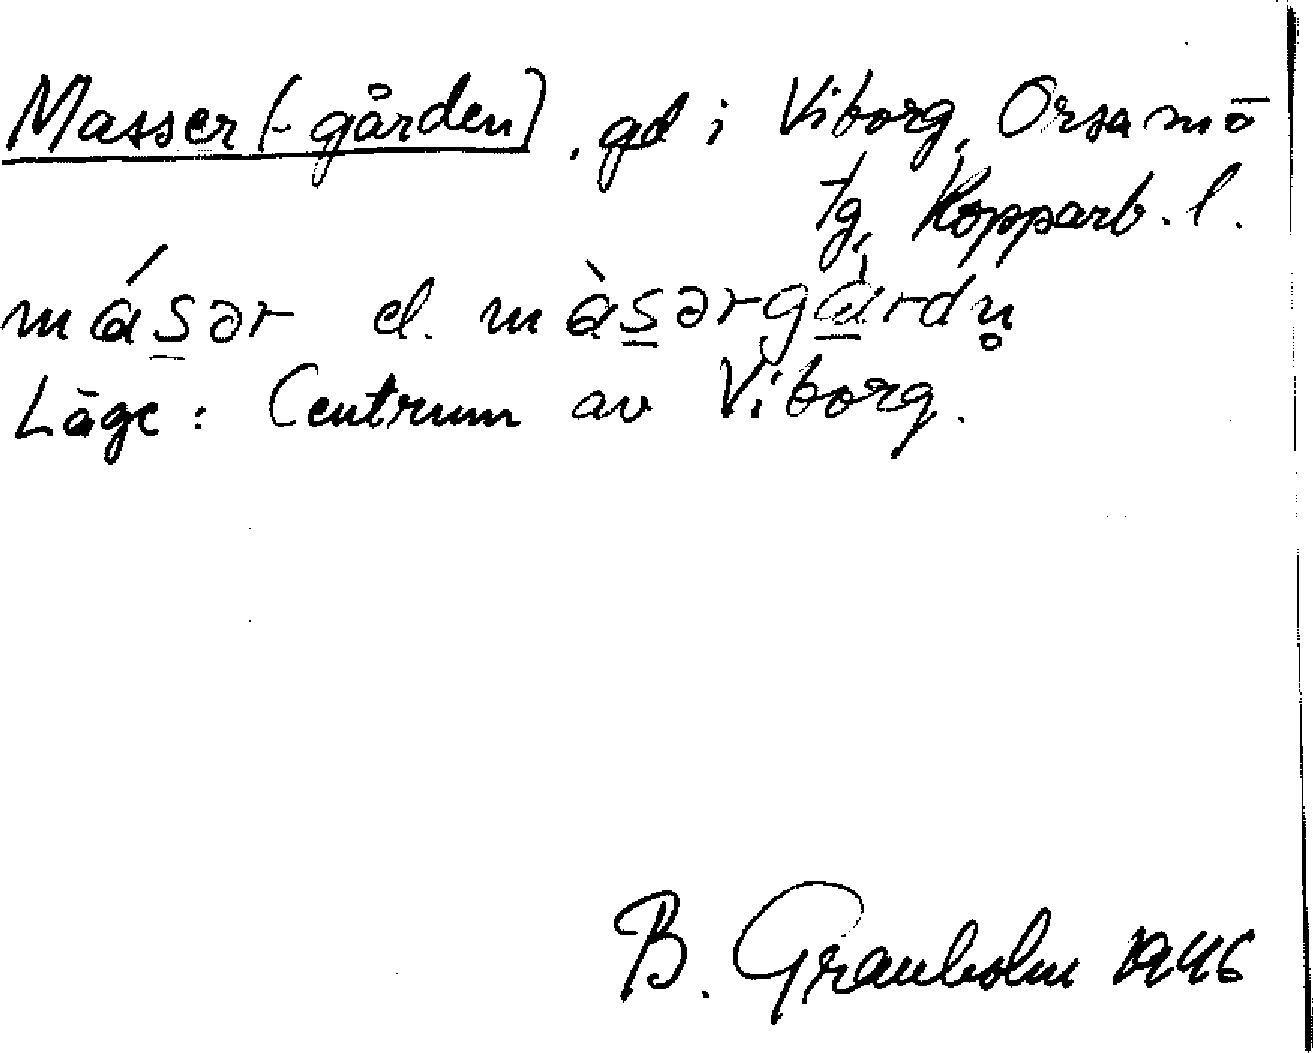 Masser (-gården), gd i Viborg, Orsa m͞o
tg, Kopparb. l.
más̲ər el. màs̲ərgá̲rdn̥
Läge: Centrum av Viborg.
B. Granholm 1946